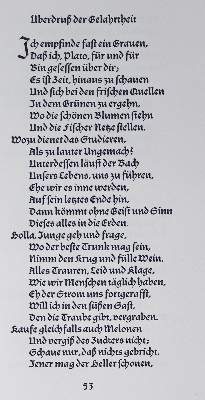 Überdruß der Gelahrtheit
Ich empfinde fast ein Grauen,
Daß ich, Plato, für und für
Bin gesessen über dir;
Es ist Zeit, hinaus zu schauen
Und sich bei den frischen Quellen
In dem Grünen zu ergehn,
Wo die schönen Blumen stehn
Und die Fischer Netze stellen.
Wozu dienet das Studieren,
Als zu lauter Ungemach?
Unterdessen läuft der Bach
Unsers Lebens, uns zu führen,
Ehe wir es inne werden,
Auf sein letztes Ende hin,
Dann kömmt ohne Geist und Sinn
Dieses alles in die Erden.
Holla, Junge geh und frage,
Wo der beste Trunk mag sein,
Nimm den Krug und fülle Wein.
Alles Trauren, Leid und Klage,
Wie wir Menschen täglich haben,
Eh der Strom uns fortgerafft,
Will ich in den süßen Saft,
Den die Traube gibt, vergraben.
Kaufe gleichfalls auch Melonen
Und vergiß des Zuckers nicht;
Schaue nur, daß nichts gebricht.
Jener mag der Heller schonen,
53